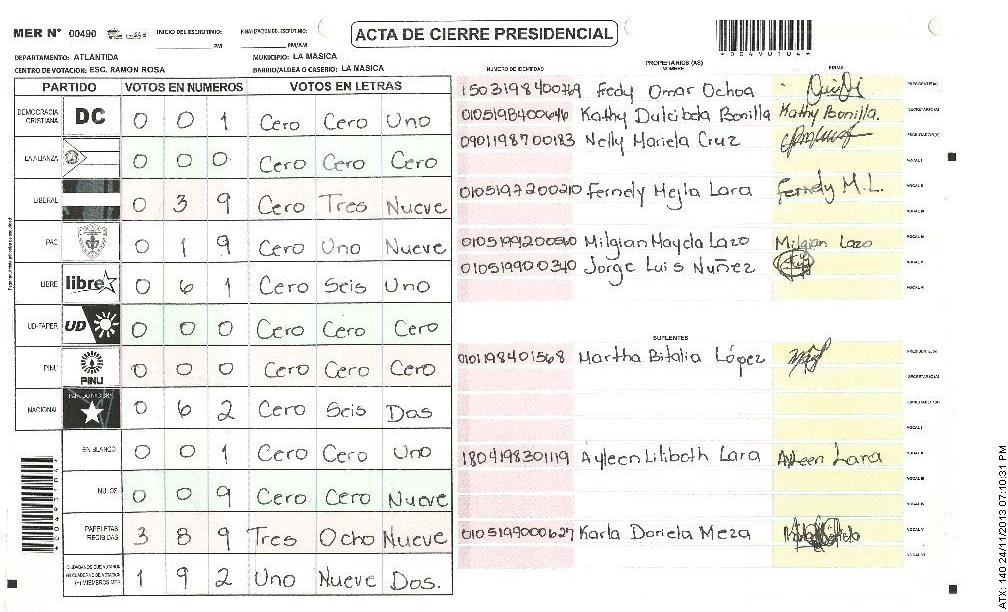 MER N° 00490 INICIO DEL ESCRUTINIO: PM FINALIZACION DEL ESCRUTINIO: PM/AM
ACTA DE CIERRE PRESIDENCIAL
00490104
DEPARTAMENTO: ATLANTIDA MUNICIPIO: LA MASICA
CENTRO DE VOTACION: ESC. RAMON ROSA BARRIO/ALDEA O CASERIO: LA MASICA
PARTIDO VOTOS EN NUMEROS VOTOS EN LETRAS
DEMOCRACIA CRISTIANA DC 0 0 1 Cero Cero Uno
LA ALIANZA 0 0 0 Cero Cero Cero
LIBERAL 0 3 9 Cero Tres Nueve
PAC 0 1 9 Cero Uno Nueve
LIBRE libre 0 6 1 Cero Seis Uno
UD-FAPER UD 0 0 0 Cero Cero Cero
PINU PINU 0 0 0 Cero Cero Cero
NACIONAL PARTIDO NACIONAL 0 6 2 Cero Seis Dos
EN BLANCO 0 0 1 Cero Cero Uno
NULOS 0 0 9 Cero Cero Nueve
PAPELETAS RECIBIDAS 3 8 9 Tres Ocho Nueve
CIUDADANOS QUE VOTARON EN CUADERNO DE VOTACION 1 9 2 Uno Nueve Dos.
PROPIETARIOS (AS)
NUMERO DE IDENTIDAD NOMBRE FIRMA
Fedy Omar Ochoa PRESIDENTE(A)
0105198400646 Kathy Dulcibela Bonilla Kathy Bonilla. SECRETARIO(A)
0901198700183 Nelly Mariela Cruz ESCRUTADOR(A)
VOCAL I
0105197200210 Fernely Mejla Lara Fernely M.L. VOCAL II
VOCAL III
0105199200560 Milgian Mayela Lazo Milgian Lazo VOCAL IV
010519900340 Jorge Luis Nuñez VOCAL V
VOCAL VI
SUPLENTES
0101198401568 Martha Bitalia López PRESIDENTE(A)
SECRETARIO(A)
ESCRUTADOR(A)
VOCAL I
1804198301119 Ayleen Lilibeth Lara Ayleen Lara VOCAL II
VOCAL III
VOCAL IV
0105199000627 Karla Doriela Meza VOCAL V
VOCAL VI
ATX: 140 24/11/2013 07:10:31 PM